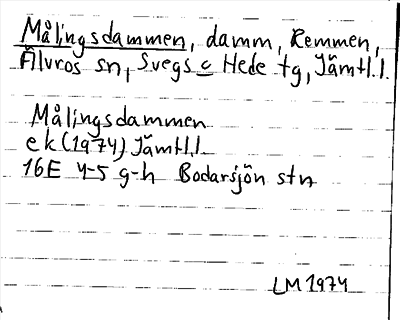 Målingsdammen, damm, Remmen,
Älvros sn, Svegs o Hede tg, Jämtl.l.
Målingsdammen
ek(1974) Jämtl.l
16E 4-5 g-h Bodarsjön stn
LM 1974